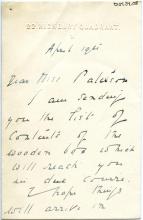 April 19th
Dear Miss
I am sending
you the list of
Contents of the
wooden box which
will reach you
in due course
I hope things
will arrive in